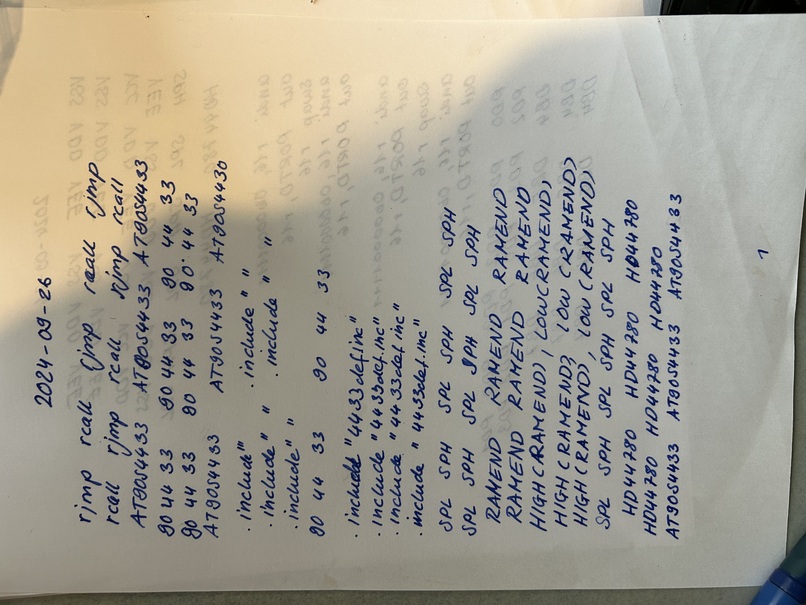 2024-09-26
rjmp rcall rjmp rcall rjmp
rcall rjmp rcall rjmp rcall
AT90S4433 AT90S4433 AT90S4433
90 44 33 90 44 33 90 44 33
90 44 33 90 44 33 90 44 33
AT90S4433 AT90S4433 AT90S4430
.include"" .include " "
.include " " .include " "
.include " "
90 44 33 90 44 33
.include "4433def.inc"
.include "4433def.inc"
.include "4433def.inc"
.include "4433def.inc"
SPL SPH SPL SPH SPL SPH
SPL SPH SPL SPH SPL SPH
RAMEND RAMEND RAMEND
RAMEND RAMEND RAMEND
HIGH(RAMEND), LOW(RAMEND)
HIGH(RAMEND), LOW (RAMEND)
HIGH(RAMEND), LOW (RAMEND)
SPL SPH SPL SPH SPL SPH
HD44780 HD44780 HD44780
HD44780 HD44780 HD44780
AT90S4433 AT90S4433 AT90S4433
1